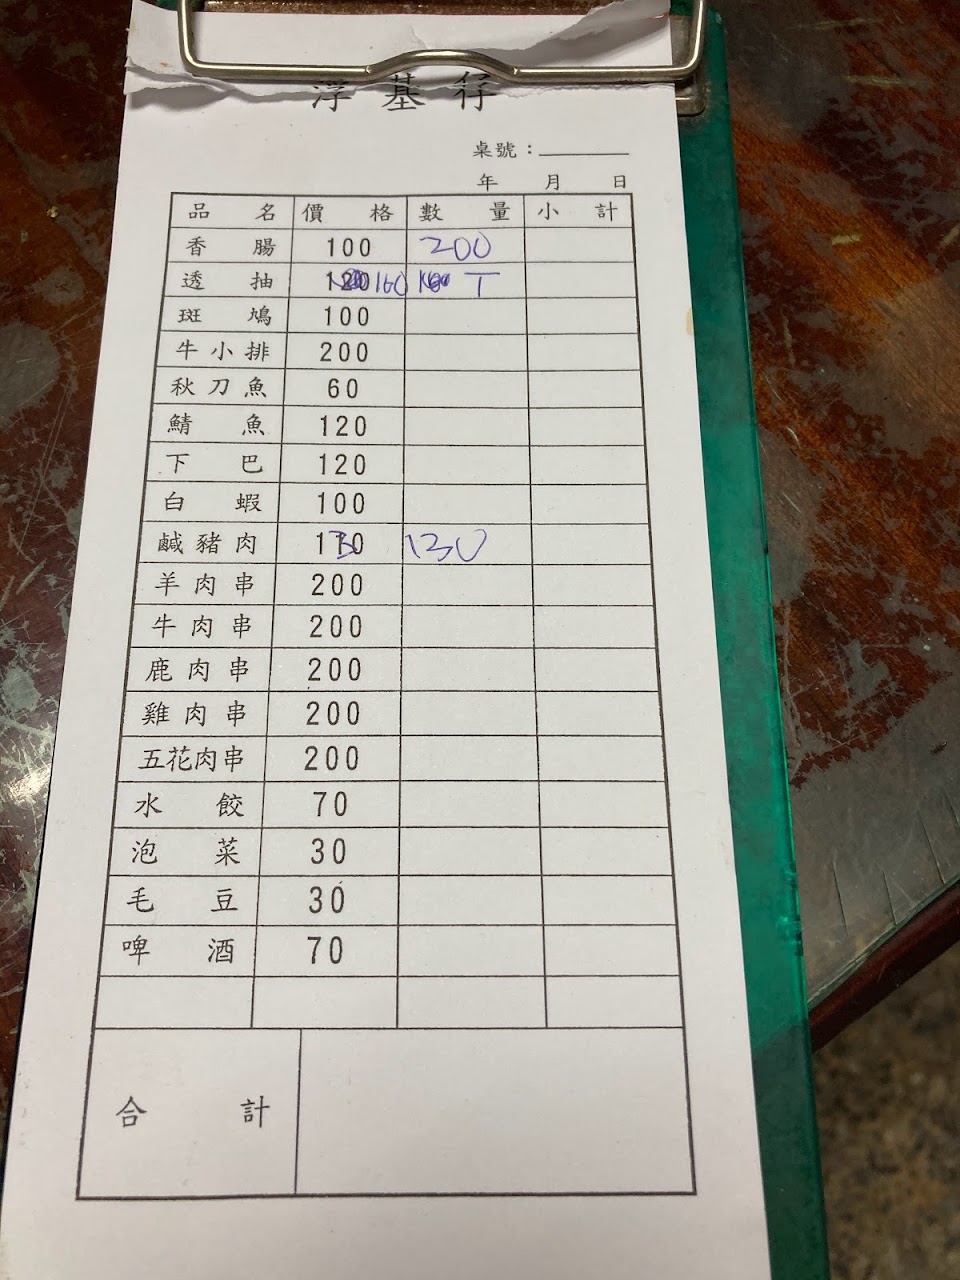 浮基仔
桌號：
年 月 日
品名 價格 數量 小計
香腸 100 200
透抽 120 160 T
斑鳩 100
牛小排 200
秋刀魚 60
鯖魚 120
下巴 120
白蝦 100
鹹豬肉 110 3 130
羊肉串 200
牛肉串 200
鹿肉串 200
雞肉串 200
五花肉串 200
水餃 70
泡菜 30
毛豆 30
啤酒 70
合計